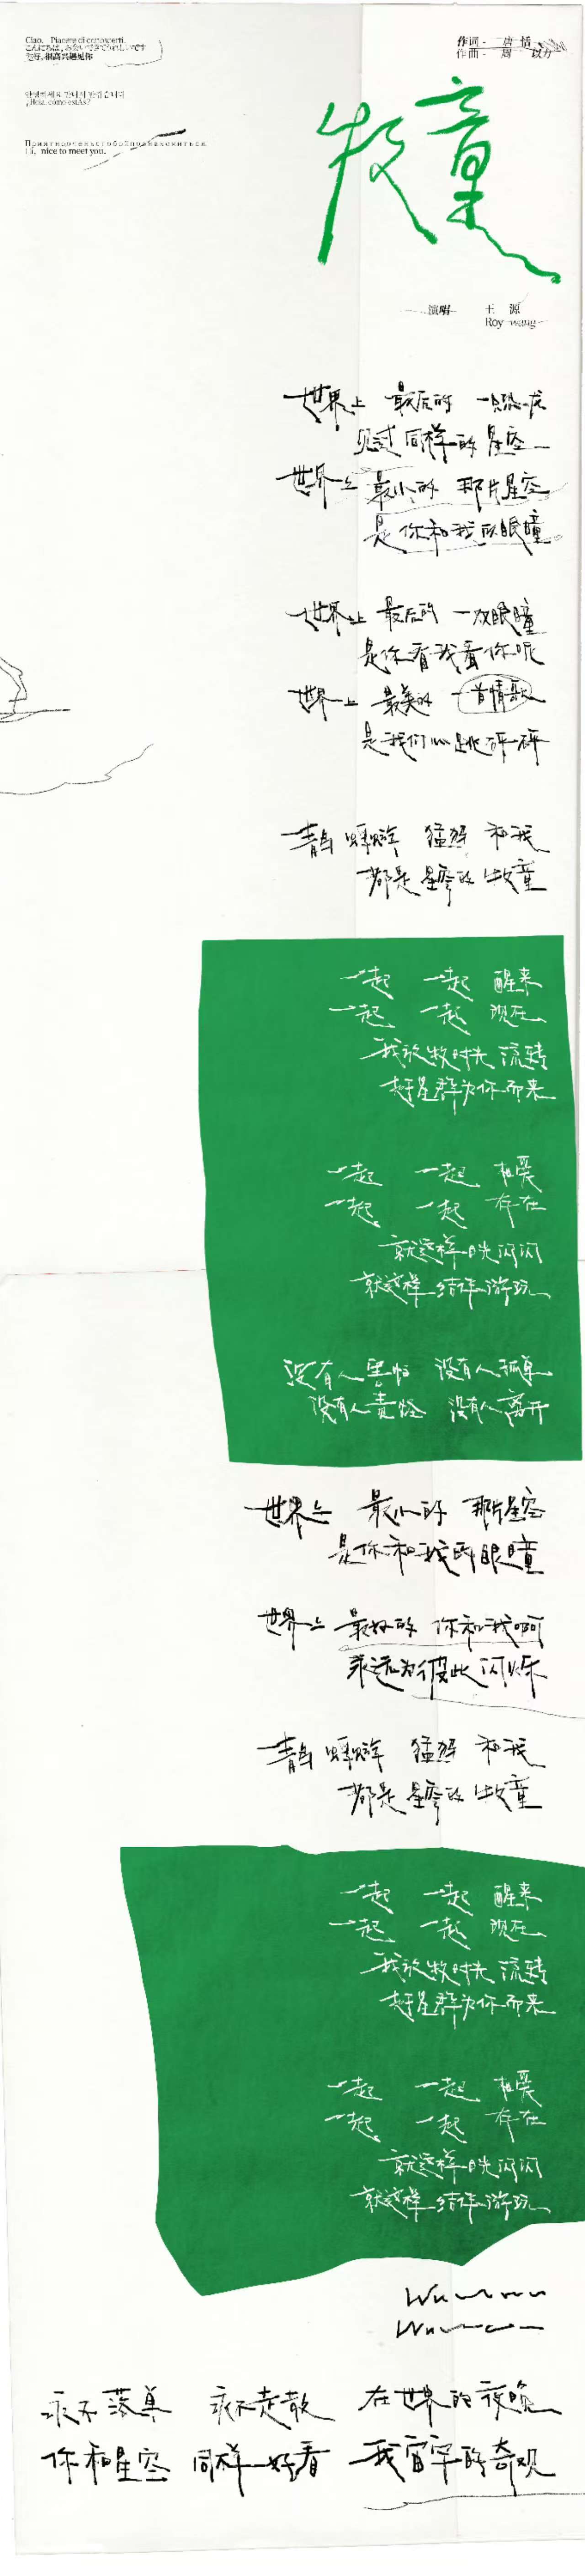 Ciao, Piacere di conoscerti.
こんにちは、お会いできてうれしいです
你好,很高兴遇见你
안녕하세요 만나서 반갑습니다
¡Hola, cómo estás?
nice to meet you.
作词 - 唐恬
作曲 - 周以力
牧童
演唱 王源
Roy wang
世界上 最后的 一只恐龙
见过同样的 星空
世界上 最小的 那片星空
是你和我的眼瞳
世界上 最后的 一双眼瞳
是你看我看你呢
世界上 最美的 一首情歌
是我们心跳砰砰
青鸟 蜉蝣 猛犸 和我
都是星穹的 牧童
一起 一起 醒来
一起 一起 现在
我放牧时光 流转
赶星群为你而来
一起 一起 相爱
一起 一起 存在
就这样 目光闪闪
就这样 结伴游玩
没有人害怕 没有人孤单
没有人责怪 没有人离开
世界上 最小的 那片星空
是你和我的眼瞳
世界上 最好的 你和我啊
永远为彼此闪烁
青鸟 蜉蝣 猛犸 和我
都是星穹的 牧童
一起 一起 醒来
一起 一起 现在
我放牧时光 流转
赶星群为你而来
一起 一起 相爱
一起 一起 存在
就这样 目光闪闪
就这样 结伴游玩
永不落单 永不走散 在世界的夜晚
你和星空 同样好看 我宇宙的奇观